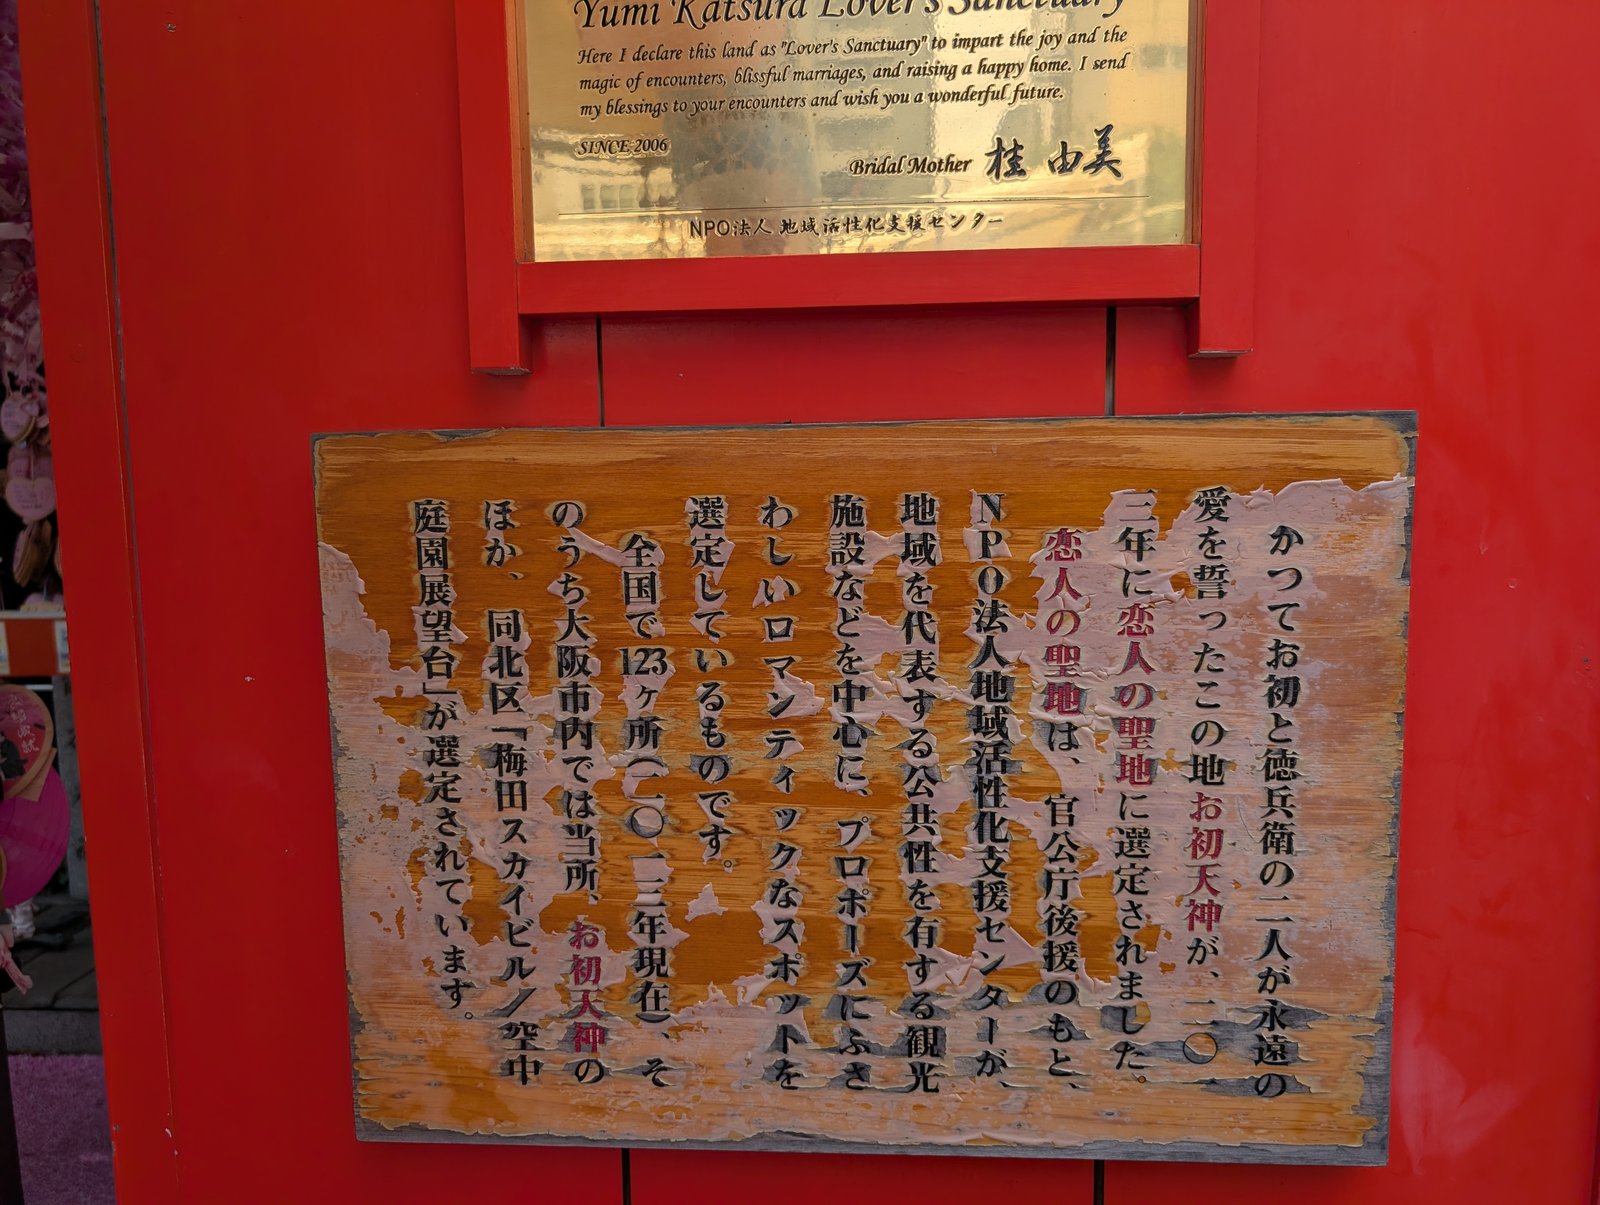 Yumi Katsura Lover's Sanctuary
Here I declare this land as "Lover's Sanctuary" to impart the joy and the
magic of encounters, blissful marriages, and raising a happy home. I send
my blessings to your encounters and wish you a wonderful future.
SINCE 2006
Bridal Mother 桂 由美
NPO法人 地域活性化支援センター
かつてお初と徳兵衛の二人が永遠の
愛を誓ったこの地お初天神が、二〇一
三年に恋人の聖地に選定されました。
恋人の聖地は、官公庁後援のもと、
NPO法人地域活性化支援センターが、
地域を代表する公共性を有する観光
施設などを中心に、プロポーズにふさ
わしいロマンティックなスポットを
選定しているものです。
全国で123ヶ所(二〇一三年現在)、そ
のうち大阪市内では当所、お初天神の
ほか、同北区「梅田スカイビル/空中
庭園展望台」が選定されています。